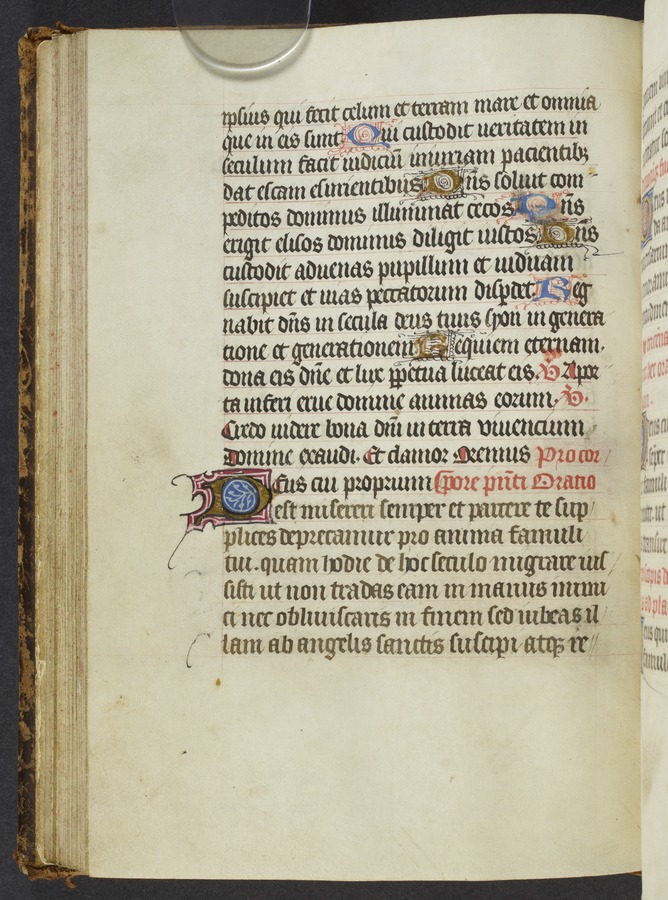 ipsius qui fecit celum et terram mare et omnia
que in eis sunt Qui custodit ueritatem in
seculum facit iudiciũ iniuriam pacientibꝫ
dat escam esurientibus Dñs soluit com
peditos dominus illuminat cecos Dñs
erigit elisos dominus diligit iustos Dñs
custodit aduenas pupillum et uiduam
suscipiet et uias peccatorum disp̱det. Reg
nabit dñs in secula deus tuus syon in genera
tione et generationem Requiem eternam.
dona eis dñe et lux ꝑpetua luceat eis. ℣ A por
ta inferi erue domine animas eorum. ℣.
Credo uidere bona dñi in terra viuencium
Domine exaudi. Et clamor Oremus Pro cor
Deus cui proprium pore pñti Oratio
est misereri semper et parcere te sup
plices deprecamur pro anima famuli
tui. quam hodie de hoc seculo migrare ius
sisti ut non tradas eam in manus inimi
ci nec obliuiscaris in finem sed iubeas il
lam ab angelis sanctis suscipi atqꝫ re